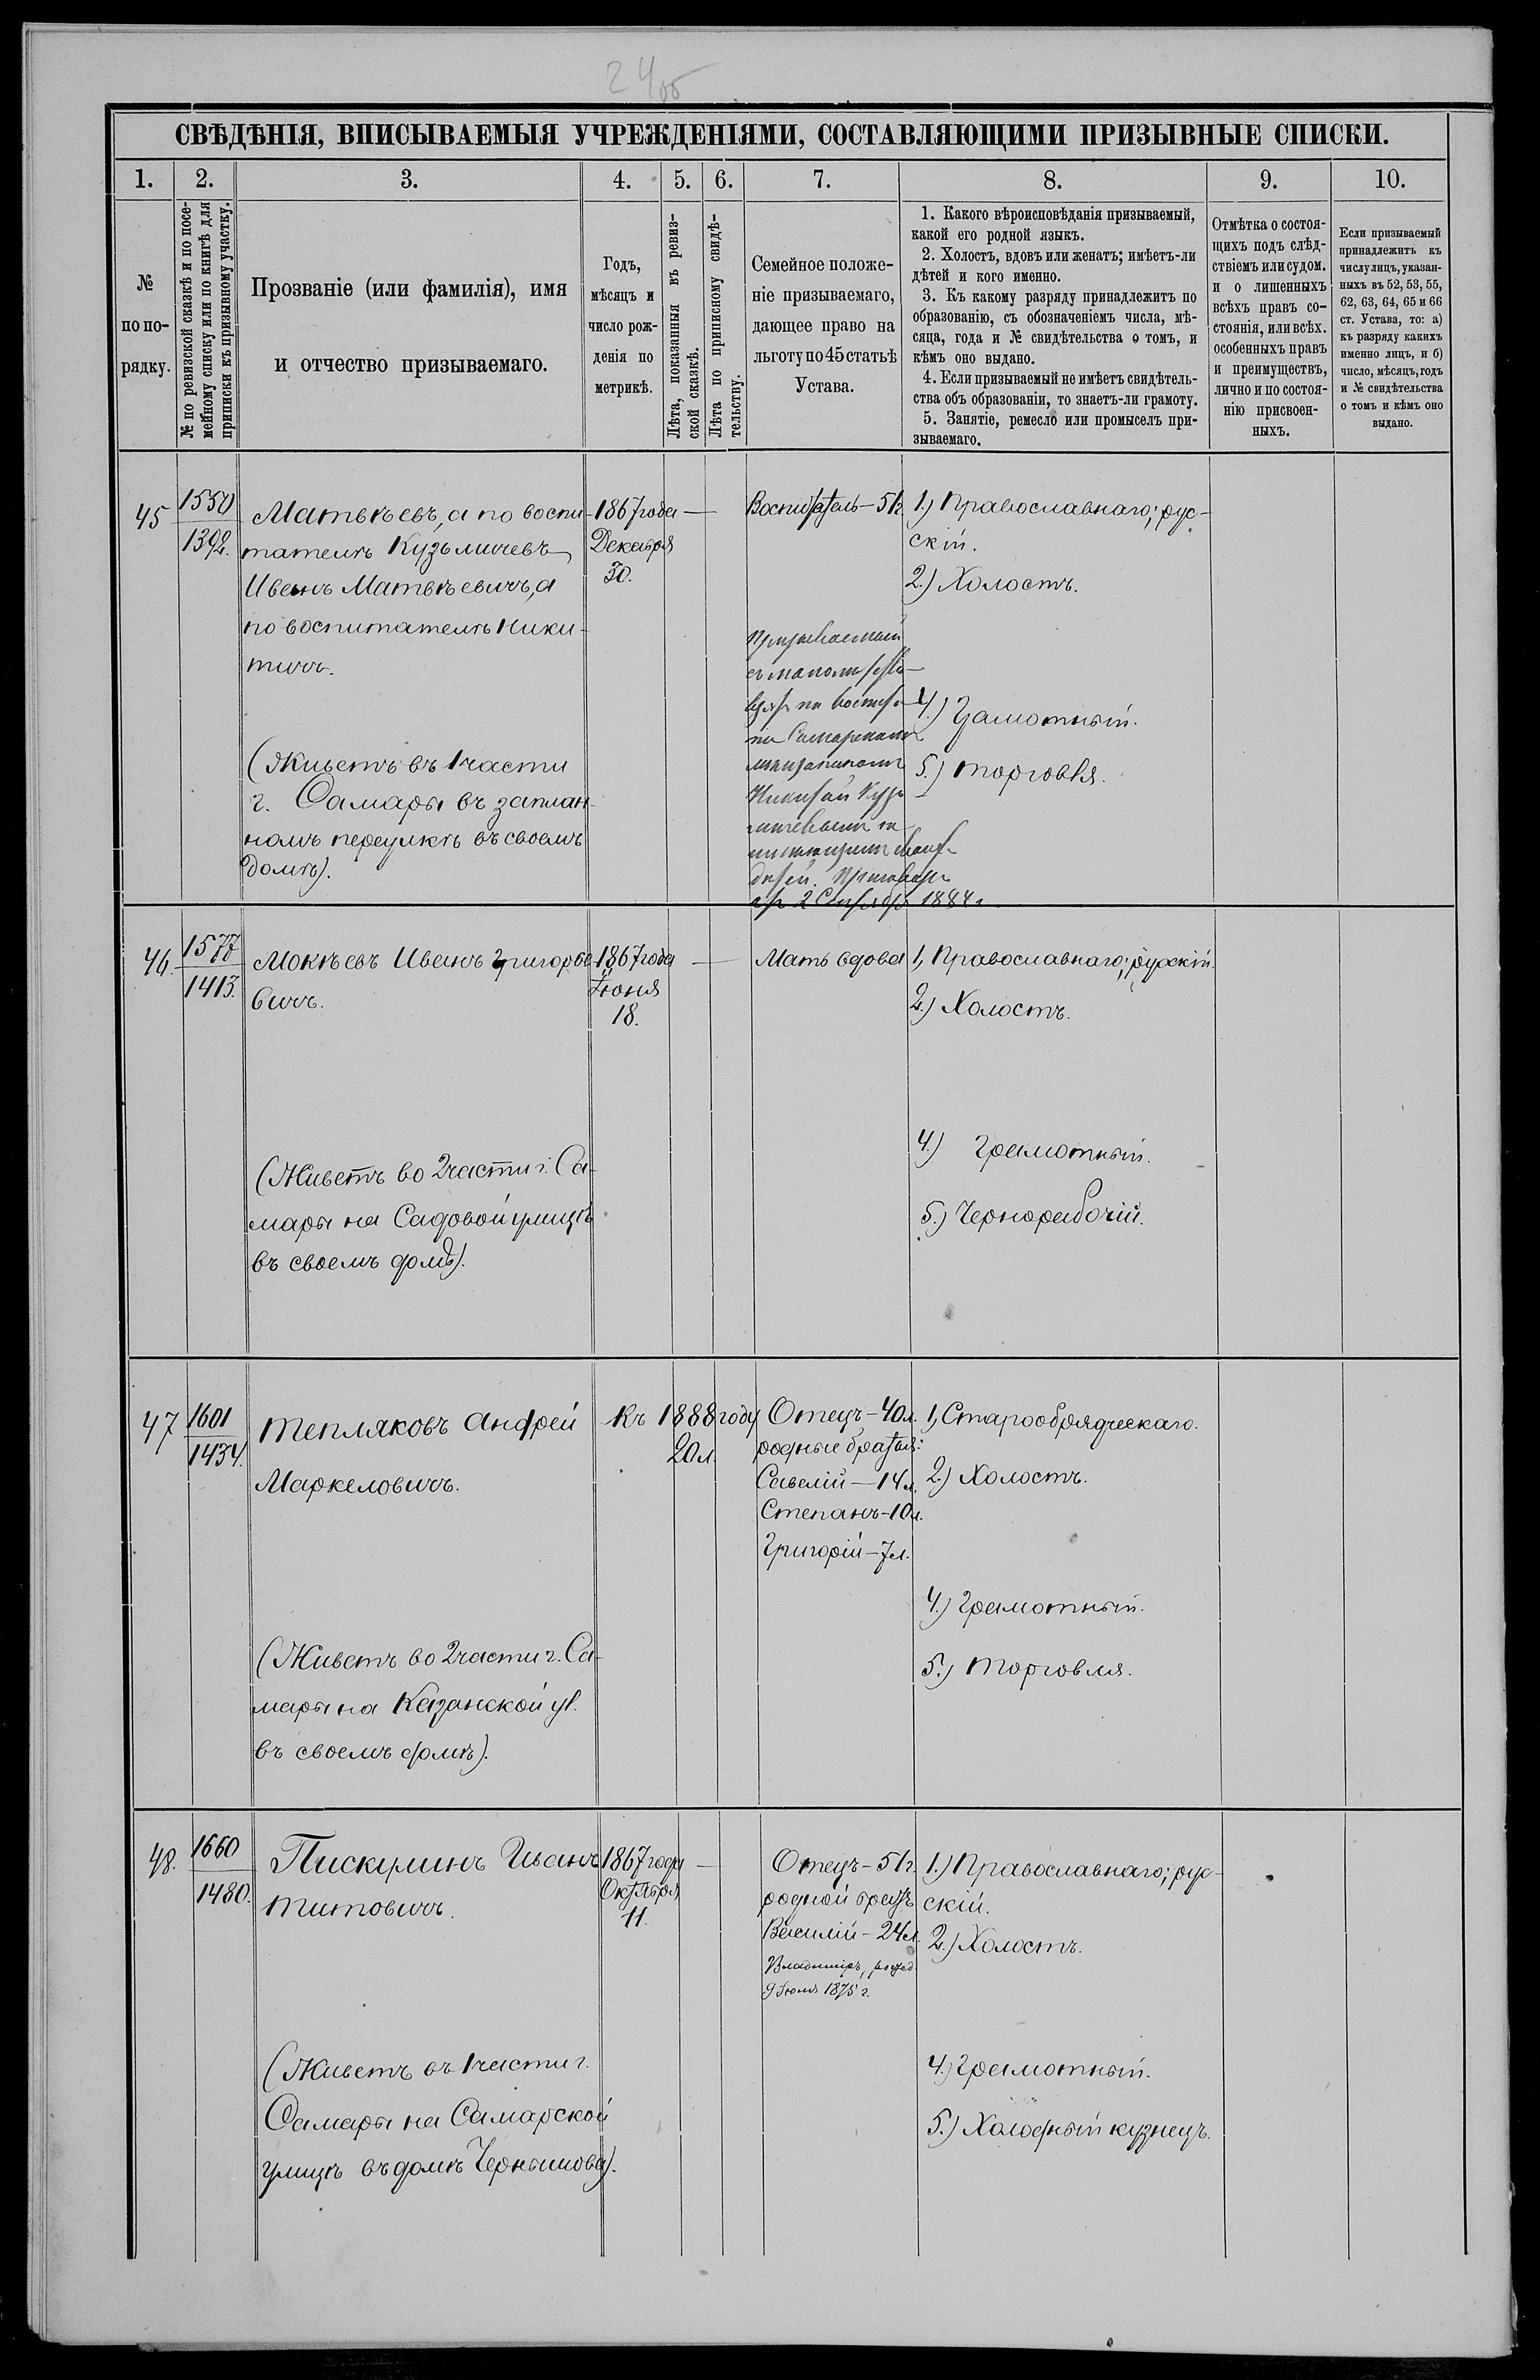 24об
СВѢДѢНІЯ, ВПИСЫВАЕМЫЯ УЧРЕЖДЕНІЯМИ, СОСТАВЛЯЮЩИМИ ПРИЗЫВНЫЕ СПИСКИ.
1.
2.
3.
4.
5.
6.
7.
8.
9.
10.
№
по по-
рядку.
№ по ревизской сказкѣ и по посе-
мейному списку или по книгѣ для
приписки къ призывному участку.
Прозваніе (или фамилія), имя
и отчество призываемаго.
Годъ,
мѣсяцъ и
число рож-
денія по
метрикѣ.
Лѣта, показанныя въ ревиз-
ской сказкѣ.
Лѣта по приписному свидѣ-
тельству.
Семейное положе-
ніе призываемаго,
дающее право на
льготу по 45 статьѣ
Устава.
1. Какого вѣроисповѣданія призываемый,
какой его родной языкъ.
2. Холостъ, вдовъ или женатъ; имѣетъ-ли
дѣтей и кого именно.
3. Къ какому разряду принадлежитъ по
образованію, съ обозначеніемъ числа, мѣ-
сяца, года и № свидѣтельства о томъ, и
кѣмъ оно выдано.
4. Если призываемый не имѣетъ свидѣтель-
ства объ образованіи, то знаетъ-ли грамоту.
5. Занятіе, ремесло или промыселъ при-
зываемаго.
Отмѣтка о состоя-
щихъ подъ слѣд-
ствіемъ или судом.
и о лишенныхъ
всѣхъ правъ со-
стоянія, или всѣх.
особенныхъ правъ
и преимуществъ,
лично и по состоя-
нію присвоен-
ныхъ.
Если призываемый
принадлежитъ къ
числу лицъ, указан-
ныхъ въ 52, 53, 55,
62, 63, 64, 65 и 66
ст. Устава, то: а)
къ разряду какихъ
именно лицъ, и б)
число, мѣсяцъ, годъ
и № свидѣтельства
о томъ и кѣмъ оно
выдано.
45
1550
1392.
Матвѣевъ, а по воспи-
тателѣ Кузьмичевъ
Иванъ Матвѣевичъ, а
по воспитателѣ Ники-
тичъ.
(Живетъ въ 1 части
г. Самары въ заплан-
номъ переулкѣ въ своемъ
домѣ).
1867 года
Декабря
30.
—
Воспитатель – 51г.
Призываемый
взятъ на воспита-
ніе Самарскимъ
мѣщаниномъ
Никитой Кузь-
мичевымъ не
имѣющимъ своихъ
дѣтей. Приговоръ
2 Сентября 1884 г.
1.) Православнаго; рус-
скій.
2.) Холостъ.
4.) Грамотный.
5.) Торговля.
46.
1577
1413.
Мокѣевъ Иванъ Григорье-
вичъ.
(Живетъ во 2 части г. Са-
мары на Садовой улицѣ
въ своемъ домѣ).
1867 года
Іюня
18.
—
Мать вдова
1, Православнаго; русскій.
2.) Холостъ.
4.) Грамотный.
5.) Чернорабочій.
47
1601
1434.
Тепляковъ Андрей
Маркеловичъ.
(Живетъ во 2 части г. Са-
мары на Казанской ул.
въ своемъ домѣ).
Къ 1888 году
20 л.
Отецъ – 40 л.
родные братья:
Савелій – 14 л.
Степанъ – 10 л.
Григорій – 7 л.
1, Старообрядческаго.
2.) Холостъ.
4.) Грамотный.
5.) Торговля.
48.
1660
1480.
Пискулинъ Иванъ
Титовичъ.
(Живетъ въ 1 части г.
Самары на Самарской
улицѣ въ домѣ Чернышова).
1867 года
Октября
11.
—
Отецъ – 51г.
родной братъ
Василій – 24 л.
Владиміръ, рожд.
9 Іюля 1875 г.
1.) Православнаго; рус-
скій.
2.) Холостъ.
4.) Грамотный.
5.) Холодный кузнецъ.